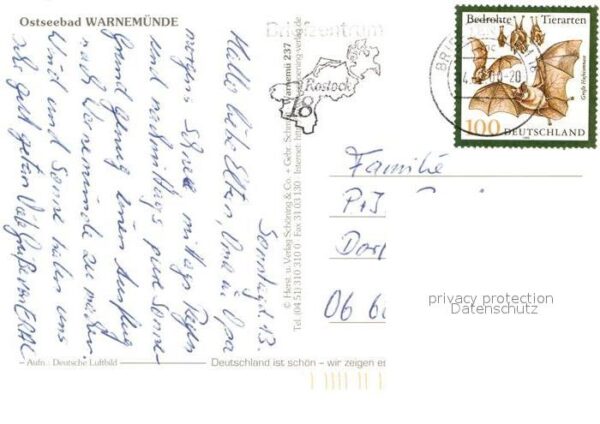 Ostseebad WARNEMÜNDE
Sonntag d. 13.
Hallo liebe Eltern, Oma u. Opa
morgens Schnee mittags Regen
und nachmittags pure Sonne -
Grund genug einen Ausflug
nach Warnemünde zu machen.
Wind und Sonne haben uns
sehr gut getan Viele Grüße von
Aufn.: Deutsche Luftbild
Deutschland ist schön – wir zeigen es
© Herst. u. Verlag Schöning & Co. + Gebr. Schmidt
Tel. (04 51) 310 310 0 Fax 31 03 130 Internet:
Warnemü 237
Briefzentrum
Rostock
18
BRIEFZENTRUM
Bedrohte Tierarten
Große Hufeisennase
100 DEUTSCHLAND
Familie
Dorf
06 6
privacy protection
Datenschutz